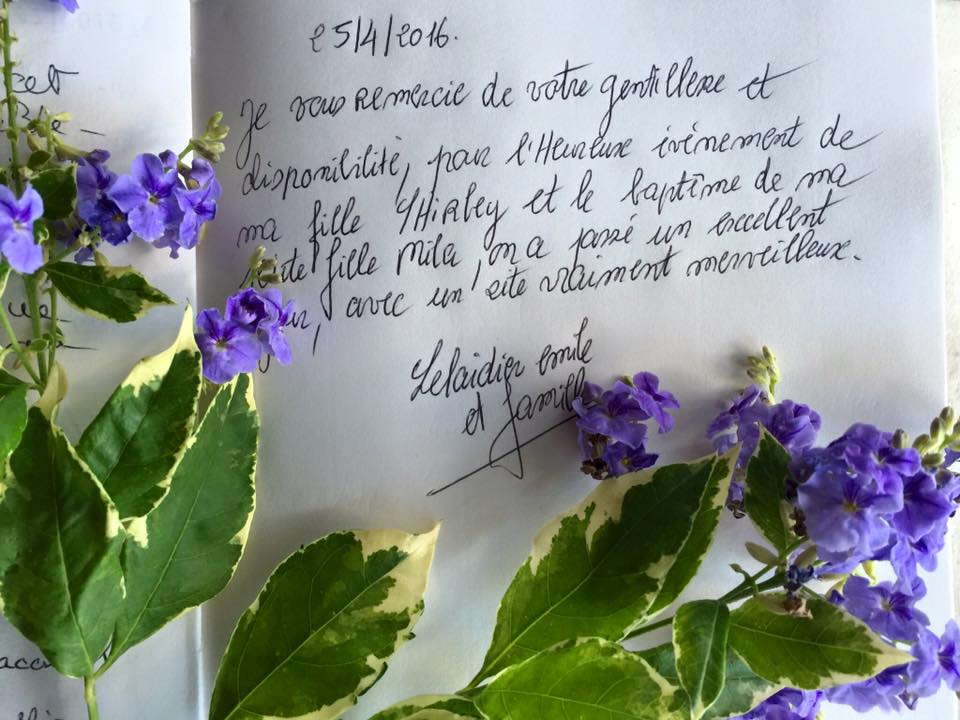 25/4/2016.
Je vous remercie de votre gentillesse et
disponibilité, par l'Heureuse événement de
ma fille SHirley et le baptême de ma
fille Mila, on a passé un excellent
avec un site vraiment merveilleux.
Lelaidier emile
et famille